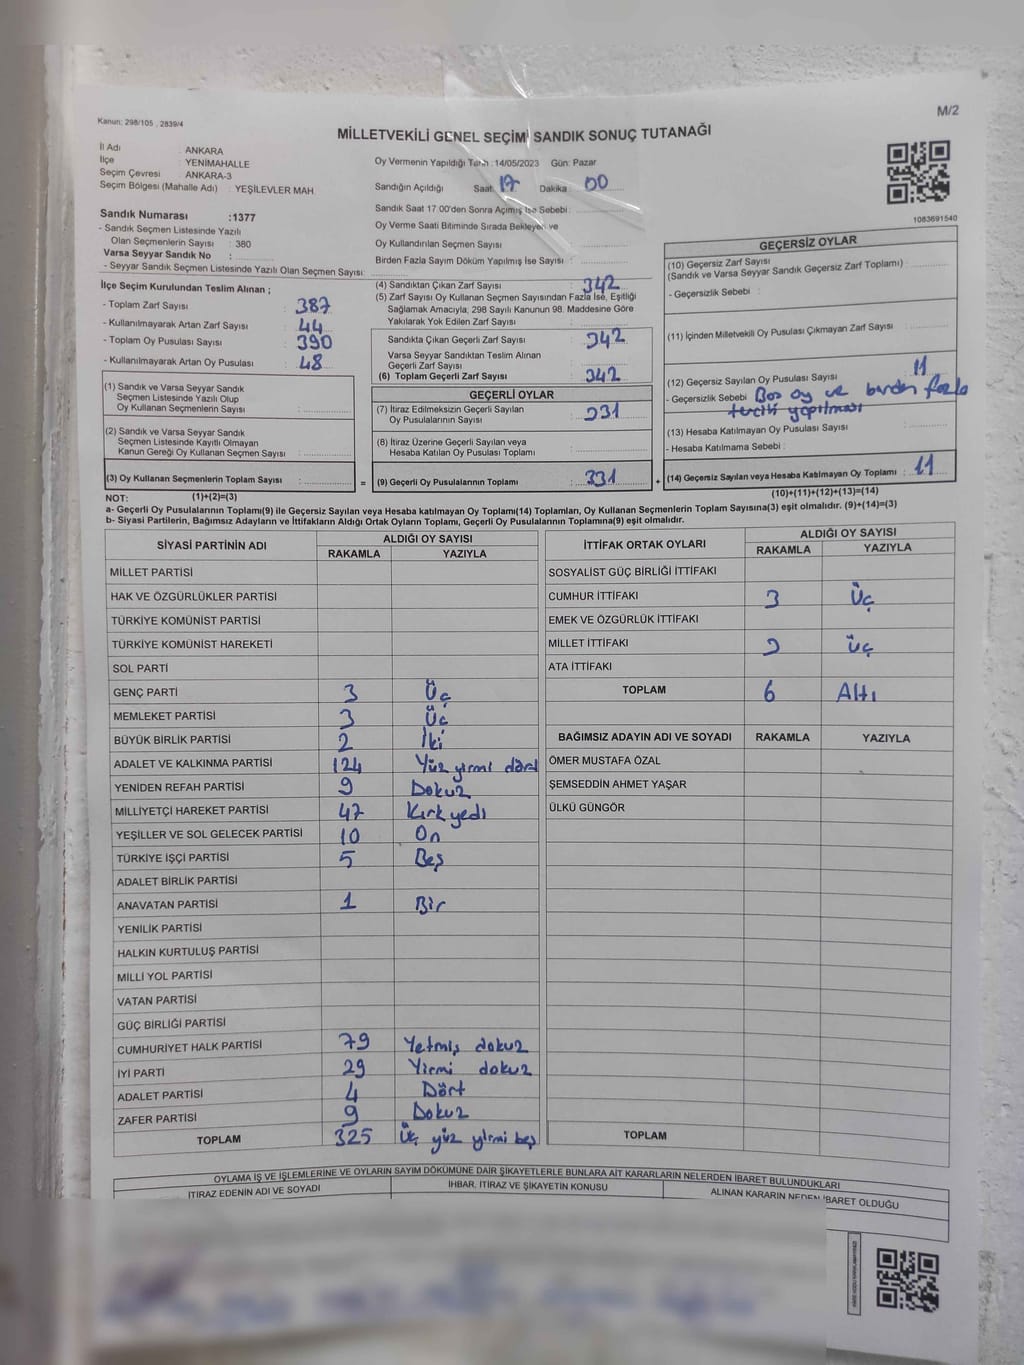 Kanun: 298/105 , 2839/4
M/2
MİLLETVEKİLİ GENEL SEÇİMİ SANDIK SONUÇ TUTANAĞI
İl Adı : ANKARA
İlçe : YENİMAHALLE
Seçim Çevresi : ANKARA-3
Seçim Bölgesi (Mahalle Adı) : YEŞİLEVLER MAH.
Sandık Numarası :1377
- Sandık Seçmen Listesinde Yazılı
Olan Seçmenlerin Sayısı : 380
Varsa Seyyar Sandık No :
- Seyyar Sandık Seçmen Listesinde Yazılı Olan Seçmen Sayısı:
Oy Vermenin Yapıldığı Tarih :14/05/2023 Gün: Pazar
Sandığın Açıldığı Saat 17 Dakika 00
Sandık Saat 17.00'den Sonra Açmış İse Sebebi :
Oy Verme Saati Bitiminde Sırada Bekleyen ve
Oy Kullandırılan Seçmen Sayısı
Birden Fazla Sayım Döküm Yapılmış İse Sayısı :
1083691540
İlçe Seçim Kurulundan Teslim Alınan ;
- Toplam Zarf Sayısı : 387
- Kullanılmayarak Artan Zarf Sayısı : 44
- Toplam Oy Pusulası Sayısı : 390
- Kullanılmayarak Artan Oy Pusulası : 48
(1) Sandık ve Varsa Seyyar Sandık
Seçmen Listesinde Yazılı Olup
Oy Kullanan Seçmenlerin Sayısı :
(2) Sandık ve Varsa Seyyar Sandık
Seçmen Listesinde Kayıtlı Olmayan
Kanun Gereği Oy Kullanan Seçmen Sayısı :
(3) Oy Kullanan Seçmenlerin Toplam Sayısı :
(4) Sandıktan Çıkan Zarf Sayısı : 342
(5) Zarf Sayısı Oy Kullanan Seçmen Sayısından Fazla İse, Eşitliği
Sağlamak Amacıyla, 298 Sayılı Kanunun 98. Maddesine Göre
Yakılarak Yok Edilen Zarf Sayısı :
Sandıkta Çıkan Geçerli Zarf Sayısı : 342
Varsa Seyyar Sandıktan Teslim Alınan
Geçerli Zarf Sayısı :
(6) Toplam Geçerli Zarf Sayısı : 342
GEÇERLİ OYLAR
(7) İtiraz Edilmeksizin Geçerli Sayılan
Oy Pusulalarının Sayısı : 331
(8) İtiraz Üzerine Geçerli Sayılan veya
Hesaba Katılan Oy Pusulası Toplamı :
= (9) Geçerli Oy Pusulalarının Toplamı : 331
GEÇERSİZ OYLAR
(10) Geçersiz Zarf Sayısı
(Sandık ve Varsa Seyyar Sandık Geçersiz Zarf Toplamı) :
- Geçersizlik Sebebi :
(11) İçinden Milletvekili Oy Pusulası Çıkmayan Zarf Sayısı :
(12) Geçersiz Sayılan Oy Pusulası Sayısı : 11
- Geçersizlik Sebebi : Boş oy ve birden fazla
tercih yapılması
(13) Hesaba Katılmayan Oy Pusulası Sayısı :
- Hesaba Katılmama Sebebi :
+ (14) Geçersiz Sayılan veya Hesaba Katılmayan Oy Toplamı : 11
NOT: (1)+(2)=(3)
(10)+(11)+(12)+(13)=(14)
a- Geçerli Oy Pusulalarının Toplamı(9) ile Geçersiz Sayılan veya Hesaba katılmayan Oy Toplamı(14) Toplamları, Oy Kullanan Seçmenlerin Toplam Sayısına(3) eşit olmalıdır. (9)+(14)=(3)
b- Siyasi Partilerin, Bağımsız Adayların ve İttifakların Aldığı Ortak Oyların Toplamı, Geçerli Oy Pusulalarının Toplamına(9) eşit olmalıdır.
SİYASİ PARTİNİN ADI ALDIĞI OY SAYISI
RAKAMLA YAZIYLA
MİLLET PARTİSİ
HAK VE ÖZGÜRLÜKLER PARTİSİ
TÜRKİYE KOMÜNİST PARTİSİ
TÜRKİYE KOMÜNİST HAREKETİ
SOL PARTİ
GENÇ PARTİ 3 Üç
MEMLEKET PARTİSİ 3 Üç
BÜYÜK BİRLİK PARTİSİ 2 İki
ADALET VE KALKINMA PARTİSİ 124 Yüz yirmi dört
YENİDEN REFAH PARTİSİ 9 Dokuz
MİLLİYETÇİ HAREKET PARTİSİ 47 Kırk yedi
YEŞİLLER VE SOL GELECEK PARTİSİ 10 On
TÜRKİYE İŞÇİ PARTİSİ 5 Beş
ADALET BİRLİK PARTİSİ
ANAVATAN PARTİSİ 1 Bir
YENİLİK PARTİSİ
HALKIN KURTULUŞ PARTİSİ
MİLLİ YOL PARTİSİ
VATAN PARTİSİ
GÜÇ BİRLİĞİ PARTİSİ
CUMHURİYET HALK PARTİSİ 79 Yetmiş dokuz
İYİ PARTİ 29 Yirmi dokuz
ADALET PARTİSİ 4 Dört
ZAFER PARTİSİ 9 Dokuz
TOPLAM 325 Üç yüz yirmi beş
İTTİFAK ORTAK OYLARI ALDIĞI OY SAYISI
RAKAMLA YAZIYLA
SOSYALİST GÜÇ BİRLİĞİ İTTİFAKI
CUMHUR İTTİFAKI 3 Üç
EMEK VE ÖZGÜRLÜK İTTİFAKI
MİLLET İTTİFAKI 3 Üç
ATA İTTİFAKI
TOPLAM 6 Altı
BAĞIMSIZ ADAYIN ADI VE SOYADI RAKAMLA YAZIYLA
ÖMER MUSTAFA ÖZAL
ŞEMSEDDİN AHMET YAŞAR
ÜLKÜ GÜNGÖR
TOPLAM
OYLAMA İŞ VE İŞLEMLERİNE VE OYLARIN SAYIM DÖKÜMÜNE DAİR ŞİKAYETLERLE BUNLARA AİT KARARLARIN NELERDEN İBARET BULUNDUKLARI
İTİRAZ EDENİN ADI VE SOYADI İHBAR, İTİRAZ VE ŞİKAYETİN KONUSU ALINAN KARARIN NEDEN İBARET OLDUĞU